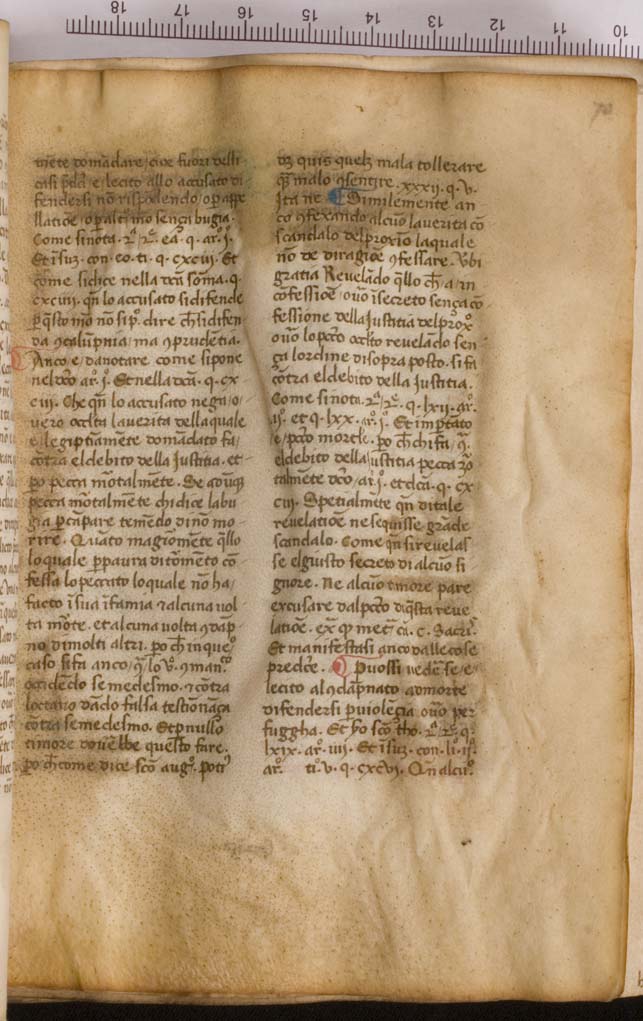 mẽte domãdare / cioe fuori delli
casi p̃dcĩ e / lecito allo accusato di
fendersi nõ rispõdendo / o p̱ appe
llatiõe / o p̱ altº mº senza bugia.
Come si nota. 2ª. 2ᵉ. ea. q. ar. j.
Et ĩ suz. con. eo. ti. q. cxcvij. Et
cõme si dice nella dcã sõma. q.
cxcviij. qñ lo accusato si difende
p̱ q̃sto mº nõ si pº. dire ch̃ si difen
da ꝯ calũpnia / ma ꝯ prudẽtia.
Anco e / da notare come si pone
nel dcõ ar. j. Et nella dcã. q. cx
ciij. Che qñ lo accusato nega / o
vero occlta la verita della quale
e / legiptiamẽte domãdato fa /
cõtra el debito della Justitia. et
po pecca mõtalmẽte. Se adũq̃
pecca mõtalmẽte chi dice la bu
gia p̱ cãpare temẽdo di nõ mo
rire. Quãto magiõmẽte q̃llo
lo quale p̱ paura di tõmẽto cõ
fessa lo peccato lo quale nõ ha /
facto ĩ sua ĩfamia ⁊ alcuna vol
ta mõte. et alcuna volta ꝯ dãp
no di molti altri. po ch̃ in que
caso si fa anco
occidẽdo se medesmo. ⁊ cõtra
dãdo falsa testionãça
cõtra se medesmo. Et p̱ nullo
timore dovẽbbe questo fare.
po ch̃ come dice scõ augº. potiº
quis quelz mala tollerare
q̃ malo ꝯsentire. xxxij. q. v.
Ita ne. Similemente an
co ꝯfexando alcũo la verita cõ
scandalo del proxio la quale
nõ de di ragiõe ꝯfessare. Vbi
gratia Revelãdo q̃llo ch̃ a / in
cõfessiõe / ovº ĩ secreto senza cõ
fessione della Justitia del prox
ovº lo pcctº occltº revelãdo sen
ça lordine di sopra posto. si fa
cõtra el debito della Justitia.
Come si nota. 2ª. 2ᵉ. q. lxij. ar.
ij. et q. lxx. ar. j. Et imp̱tãto
e / pcctº mortle. po ch̃ chi fa / ꝯ.
el debito della justitia pecca mõ
talmẽte dcõ / ar. j. et dcã. q. cx
ciij. Spetialmẽte qñ di tale
revelatiõe ne sequisse grãde
scandalo. Come qñ si revelas
se el giusto secreto di alcũo si
gnore. Ne alcũo tmore pare
excusare dal pcctº di q̃sta reve
latiõe. ex qº met. cã. c. Sacriº.
Et manifestasi anco dalle cose
predcẽ. Puossi vedẽ se / e /
lecito al ꝯdãpnato a dmorte
difendersi p̱ violeçia ovº per
fuggha. Et põ scõ thº. 2ª. 2ᵉ. q.
lxix. ar. iiij. Et ĩ suz. con. li. ijº.
ar. tiº. v. q. cxcvj. Qñ alcũº.